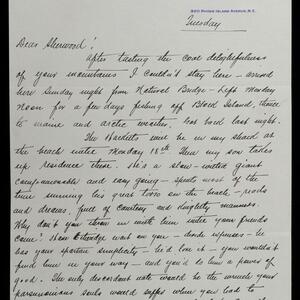 Tuesday
Dear Sherwood!
After tasting the cool delightfulness
of your mountains I couldn't stay here - arrived
here Sunday night from Natural Bridge - Left Monday
Noon for a few days fishing off Block Island, thence
to Maine and arctic waters, last bard last night.
The Hacketts will be in my shack at
the beach until Monday 18th. Then my son takes
up residence there. He's a slow-witted giant
companionable and easy going - spends most of the
time sunning his great torso on the beach - reads
and dreams, full of courtesy and kindly manners.
Why don't you move in with him until your friends
come? Ham will wait on you - dinde expenses - he
has your spartan simplicity - he'd love it - you wouldn't
find him in your way - and you'd do him a power of
good. The only discordant note would be the wrench your
parsimonious souls would suffer when you had to